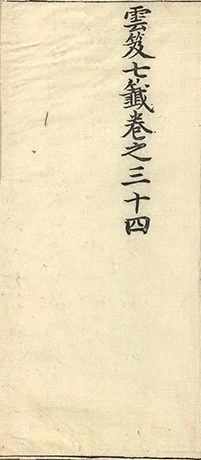 雲笈七籤卷之三十四